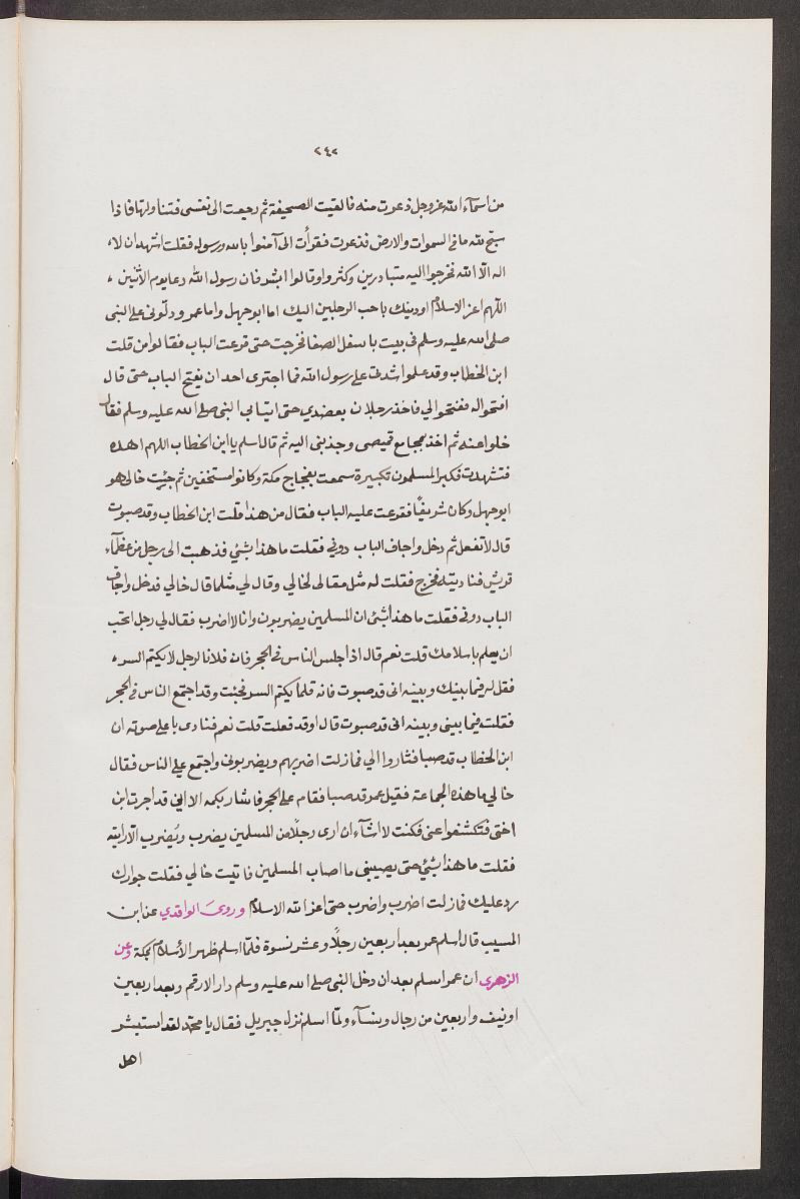 ٢٤٢
من اسمآء الله عز وجل ذعرت منه فالقيت الصحيفة ثم رجعت الى نفسى فتناولتها فاذا
سبح لله ما فى السموات والارض فذعرت فقرأت الى آمنوا بالله ورسوله فقلت اشهد ان لا
اله الّا الله فخرجوا اليه متبادرين وكثروا وقالوا ابشر فان رسول الله دعا يوم الاثنين
اللهم اعز الاسلام او دينك باحب الرجلين اليك اما ابو جهل واما عمر ودلّونى على النبى
صلى الله عليه وسلم فى بيت باسفل الصفا فخرجت حتى قرعت الباب فقالوا من قلت
ابن الخطاب وقد علموا شدتى على رسول الله فما اجترى احد ان يفتح الباب حتى قال
افتحوا له ففتحوا لي فاخذ رجلان بعضدي حتى اتيا بى النبى صلى الله عليه وسلم فقال
خلوا عنه ثم اخذ بمجامع قميصى وجذبنى اليه ثم قال اسلم يا ابن الخطاب اللهم اهده
فتشهدت فكبر المسلمون تكبيرة سمعت بفجاج مكة وكانوا مستخفين ثم جئت خالى هو
ابو جهل وكان شريفًا فقرعت عليه الباب فقال من هذا قلت ابن الخطاب وقد صبوت
قال لا تفعل ثم دخل واجاف الباب دوني فقلت ما هذا بشئ فذهبت الى رجل من عظمآء
قريش فناديته فخرج فقلت له مثل مقالى لخالي وقال لي مثلما قال خالي فدخل واجاف
الباب دونى فقلت ما هذا بشئ ان المسلمين يضربون وانا لا اضرب فقال لي رجل اتحب
ان يعلم باسلامك قلت نعم قال اذا جلس الناس فى الحجر فات فلانا لرجل لا يكتم السر
فقل له فيما بينك وبينه انى قد صبوت فانه قلما يكتم السر فجئت وقد اجتمع الناس فى الحجر
فقلت فيما بينى وبينه انى قد صبوت قال اوقد فعلت قلت نعم فنادى باعلى صوته ان
ابن الخطاب قد صبا فثاروا الي فما زلت اضربهم ويضربونى واجتمع علي الناس فقال
خالي ما هذه الجماعة فقيل عمر قد صبا فقام على الحجر فاشار بكمه الا اني قد اجرت ابن
اختى فتكشفوا عنى فكنت لا اشآء ان ارى رجلًا من المسلمين يضرب ويُضرب الّا رايته
فقلت ما هذا بشئ حتى يصيبنى ما اصاب المسلمين فاتيت خالي فقلت جوارك
رد عليك فما زلت اضرب واضرب حتى اعز الله الاسلام وروىَ الواقدي عن ابن
المسيب قال اسلم عمر بعد اربعين رجلًا وعشر نسوة فلمّا اسلم ظهر الأسلام بمكة وعن
الزهرى ان عمر اسلم بعد ان دخل النبى صلى الله عليه وسلم دار الارقم وبعد اربعين
او نيف واربعين من رجال ونسآء ولمّا اسلم نزل جبريل فقال يا محمّد لقد استبشر
اهل